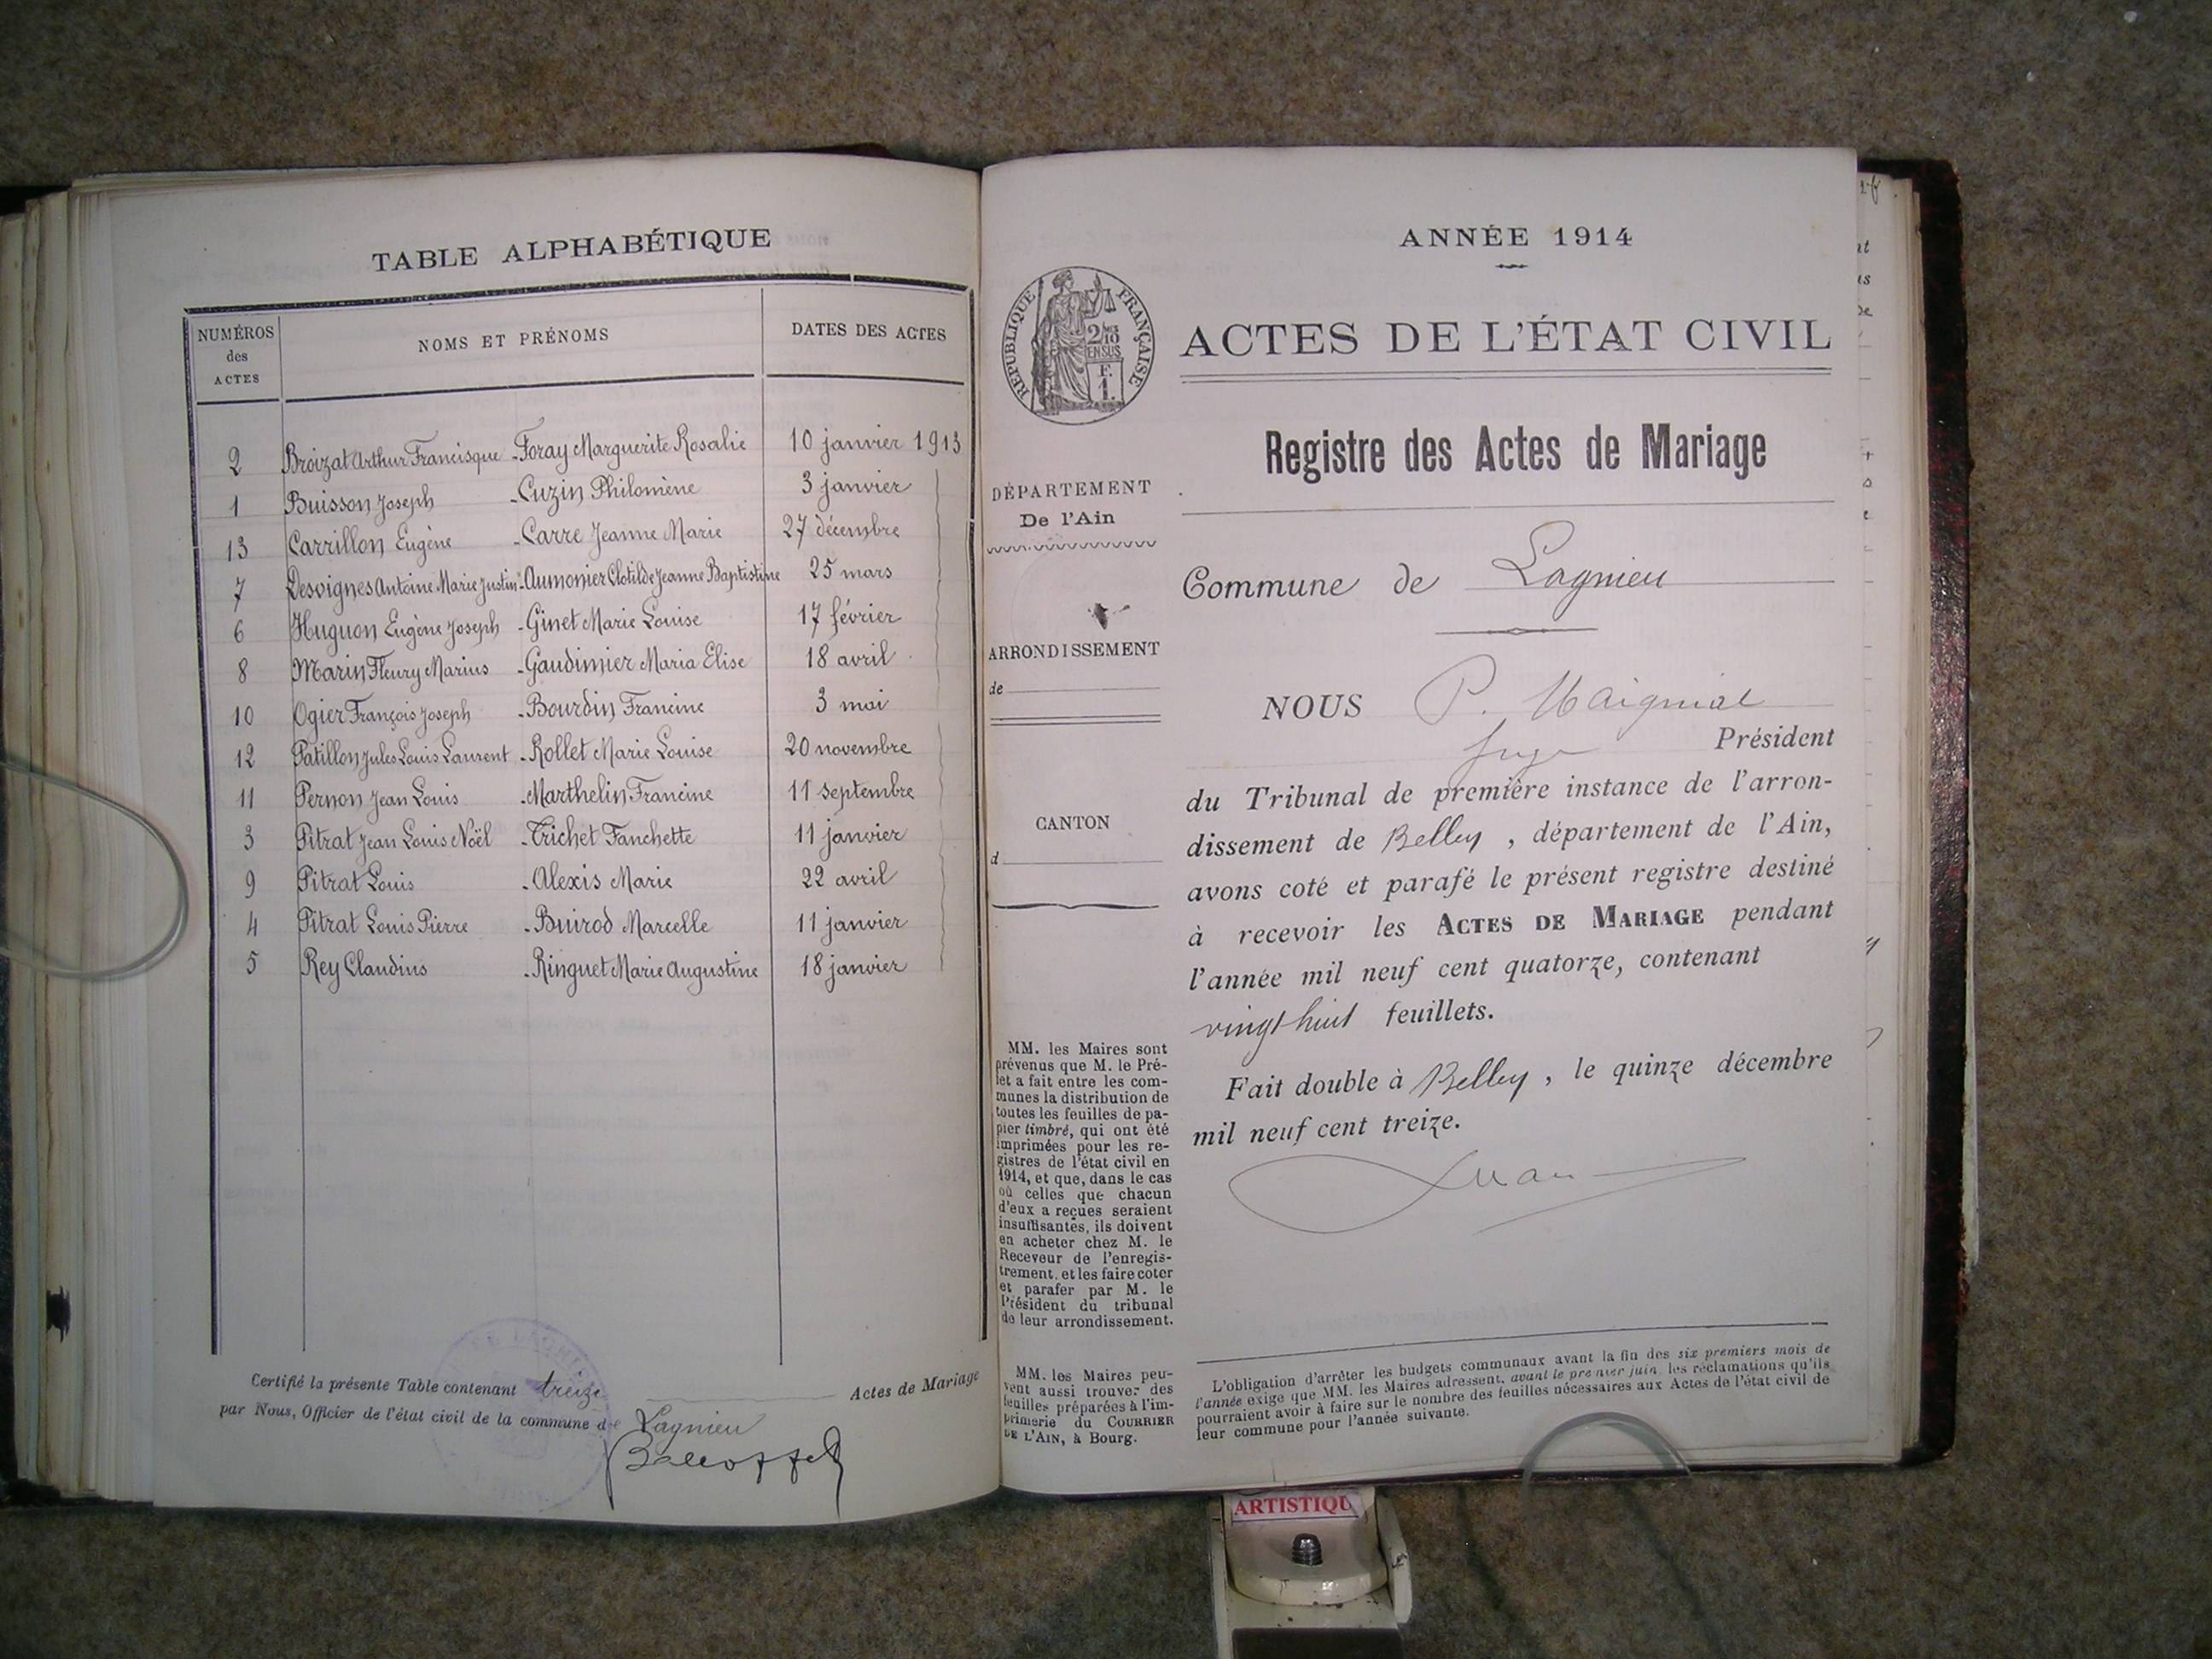 TABLE ALPHABÉTIQUE
NUMÉROS des ACTES NOMS ET PRÉNOMS DATES DES ACTES
2 Broizat Arthur Francisque - Foray Marguerite Rosalie 10 janvier 1913
1 Buisson Joseph - Cuzin Philomène 3 janvier
13 Carrillon Eugène - Carre Jeanne Marie 27 décembre
7 Desvignes Antoine Marie Justin - Aumonier Clotilde Jeanne Baptistine 25 mars
6 Huguon Eugène Joseph - Ginet Marie Louise 17 février
8 Marin Fleury Marius - Gaudimier Maria Elise 18 avril
10 Ogier François Joseph - Bourdin Francine 3 mai
12 Patillon Jules Louis Laurent - Rollet Marie Louise 20 novembre
11 Pernon Jean Louis - Marthelin Francine 11 septembre
3 Pitrat Jean Louis Noël - Trichet Fanchette 11 janvier
9 Pitrat Louis - Alexis Marie 22 avril
4 Pitrat Louis Pierre - Buirod Marcelle 11 janvier
5 Rey Claudius - Ringuet Marie Augustine 18 janvier
Certifié la présente Table contenant treize Actes de Mariage
par Nous, Officier de l'état civil de la commune de Lagnieu
ANNÉE 1914
RÉPUBLIQUE FRANÇAISE
2/10
EN SUS
F.
1.
ACTES DE L'ÉTAT CIVIL
Registre des Actes de Mariage
DÉPARTEMENT
De l'Ain
ARRONDISSEMENT
de
CANTON
d
MM. les Maires sont
prévenus que M. le Pré-
fet a fait entre les com-
munes la distribution de
toutes les feuilles de pa-
pier timbré, qui ont été
imprimées pour les re-
gistres de l'état civil en
1914, et que, dans le cas
où celles que chacun
d'eux a reçues seraient
insuffisantes, ils doivent
en acheter chez M. le
Receveur de l'enregis-
trement, et les faire coter
et parafer par M. le
Président du tribunal
de leur arrondissement.
MM. les Maires peu-
vent aussi trouver des
feuilles préparées à l'im-
primerie du COURRIER
DE L'AIN, à Bourg.
Commune de Lagnieu
NOUS P. Maignial
Juge Président
du Tribunal de première instance de l'arron-
dissement de Belley, département de l'Ain,
avons coté et parafé le présent registre destiné
à recevoir les ACTES DE MARIAGE pendant
l'année mil neuf cent quatorze, contenant
vingt huit feuillets.
Fait double à Belley, le quinze décembre
mil neuf cent treize.
L'obligation d'arrêter les budgets communaux avant la fin des six premiers mois de
l'année exige que MM. les Maires adressent, avant le premier juin, les réclamations qu'ils
pourraient avoir à faire sur le nombre des feuilles nécessaires aux Actes de l'état civil de
leur commune pour l'année suivante.
ARTISTIQU